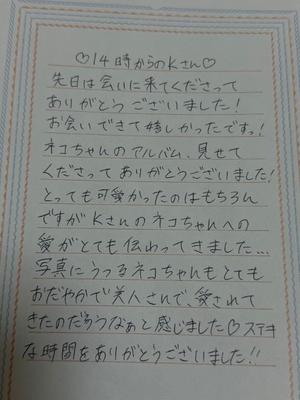 ♡14時からのKさん♡
先日は会いに来てくださって
ありがとうございました!
お会いできて嬉しかったですっ!
ネコちゃんのアルバム、見せて
くださってありがとうございました!
とっても可愛かったのはもちろん
ですがKさんのネコちゃんへの
愛がとても伝わってきました…
写真にうつるネコちゃんもとても
おだやかで美人さんで、愛されて
きたのだろうなぁと感じました♡ステキ
な時間をありがとうございました!!